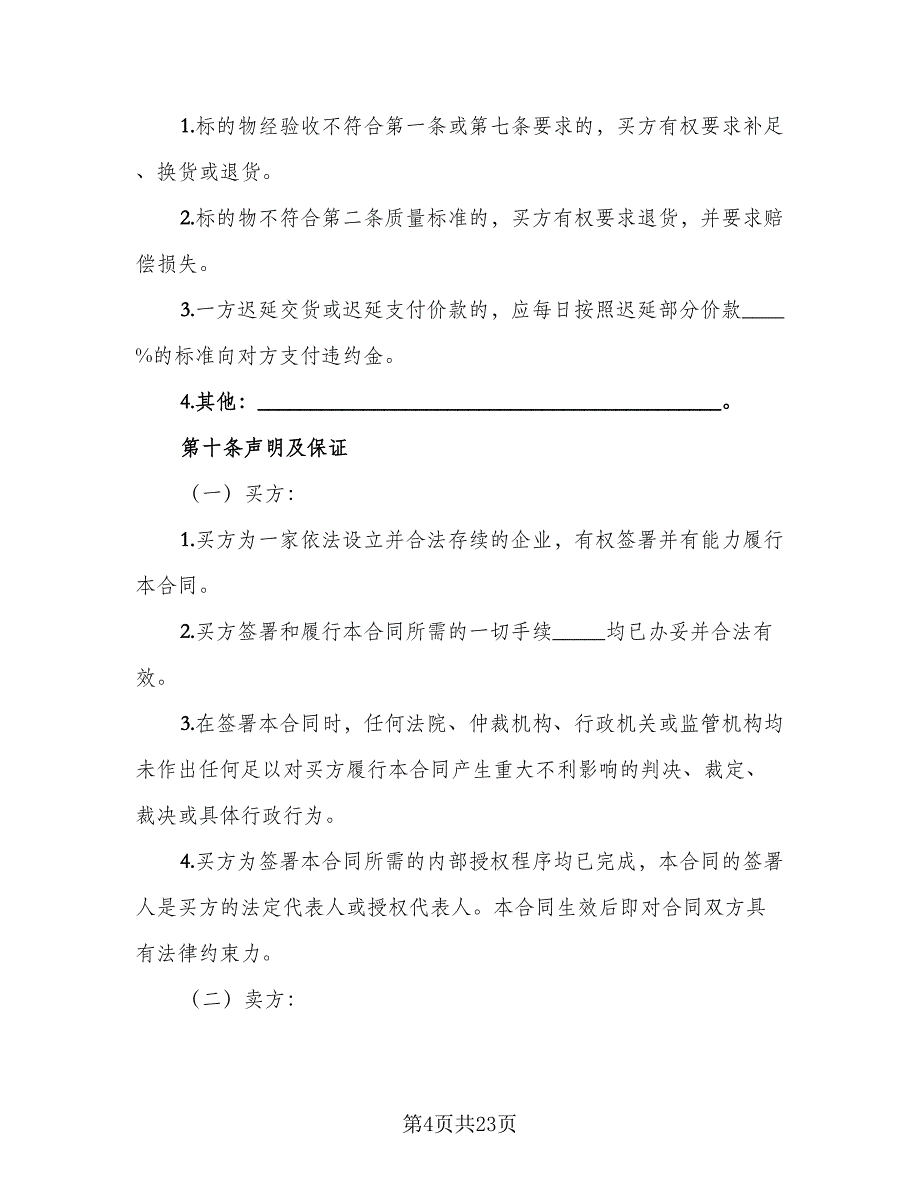 1.标的物经验收不符合第一条或第七条要求的，买方有权要求补足
、换货或退货。
2.标的物不符合第二条质量标准的，买方有权要求退货，并要求赔
偿损失。
3.一方迟延交货或迟延支付价款的，应每日按照迟延部分价款____
%的标准向对方支付违约金。
4.其他：____________________________________________。
第十条声明及保证
（一）买方：
1.买方为一家依法设立并合法存续的企业，有权签署并有能力履行
本合同。
2.买方签署和履行本合同所需的一切手续_____均已办妥并合法有
效。
3.在签署本合同时，任何法院、仲裁机构、行政机关或监管机构均
未作出任何足以对买方履行本合同产生重大不利影响的判决、裁定、
裁决或具体行政行为。
4.买方为签署本合同所需的内部授权程序均已完成，本合同的签署
人是买方的法定代表人或授权代表人。本合同生效后即对合同双方具
有法律约束力。
（二）卖方：
第4页共23页